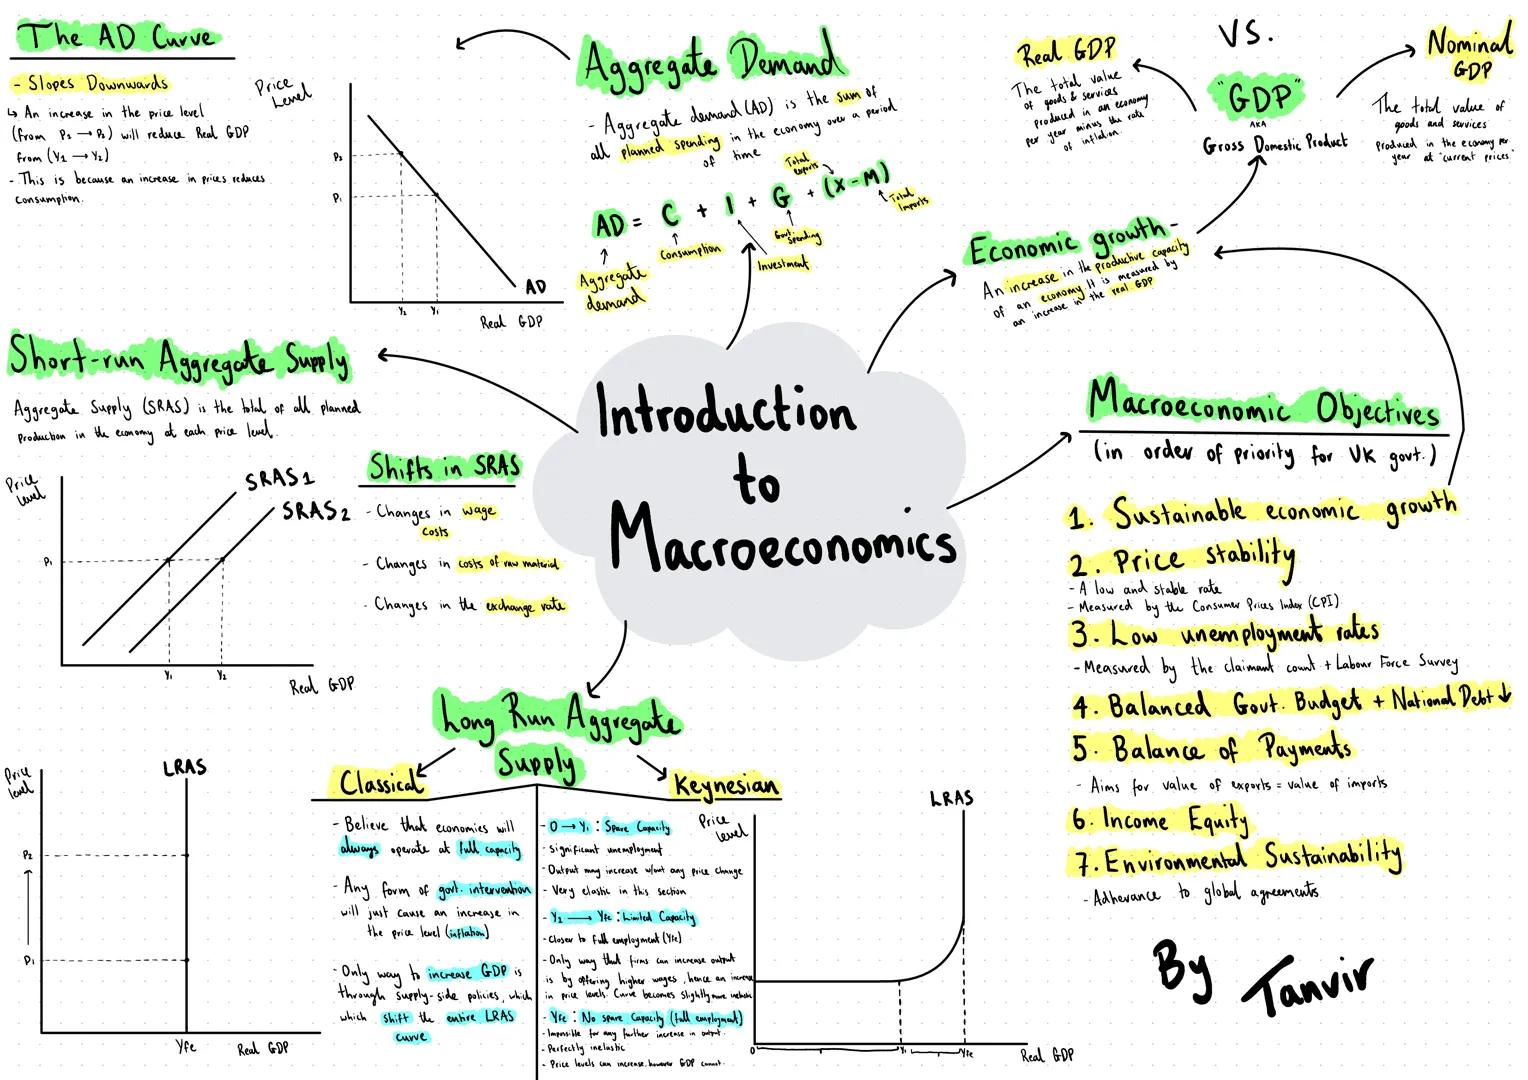 The AD Curve
- Slopes Downwards
↳ An increase in the price level
(from P2 → P2) will reduce Real GDP
from (Y1 → Y2)
- This is because an increase in prices reduces
consumption.
Price
Level
P2
P1
AD
Y2
Y1
Real GDP
Aggregate Demand
- Aggregate demand (AD) is the sum of
all planned spending in the economy over a period
of time
AD = C + I + G + (X-M)
Total
exports
Total
Imports
Aggregate
demand
Consumption
Investment
Govt.
Spending
Real GDP
The total value
of goods & services
produced in an economy
per year minus the rate
of inflation.
VS.
"GDP"
AKA
Gross Domestic Product
Nominal
GDP
The total value of
goods and services
produced in the economy per
year at "current prices".
Economic growth -
An increase in the productive capacity
of an economy. It is measured by
an increase in the real GDP
Short-run Aggregate Supply
Aggregate Supply (SRAS) is the total of all planned
production in the economy at each price level.
Price
level
SRAS1
SRAS2
P1
Y1
Y2
Real GDP
Shifts in SRAS
- Changes in wage
costs
- Changes in costs of raw material
- Changes in the exchange rate
Introduction
to
Macroeconomics
Macroeconomic Objectives
(in order of priority for UK govt.)
1. Sustainable economic growth
2. Price stability
- A low and stable rate
- Measured by the Consumer Prices Index (CPI)
3. Low unemployment rates
- Measured by the claimant count + Labour Force Survey
4. Balanced Govt. Budget + National Debt ↓
5. Balance of Payments
- Aims for value of exports = value of imports
6. Income Equity
7. Environmental Sustainability
- Adherance to global agreements
By Tanvir
Long Run Aggregate
Supply
Classical
- Believe that economies will
always operate at full capacity
- Any form of govt. intervention
will just cause an increase in
the price level (inflation)
- Only way to increase GDP is
through supply-side policies, which
which shift the entire LRAS
curve
Price
level
LRAS
P2
P1
Yfe
Real GDP
Keynesian
- 0 → Y1 : Spare Capacity
- Significant unemployment
- Output may increase w/out any price change
- Very elastic in this section
- Y1 → Yfe : Limited Capacity
- Closer to full employment (Yfe)
- Only way that firms can increase output
is by offering higher wages, hence an increase
in price levels. Curve becomes slightly more inelastic
- Yfe : No spare capacity (full employment)
- Impossible for any further increase in output.
- Perfectly inelastic
- Price levels can increase, however GDP cannot.
Price
level
LRAS
0
Y1
Yfe
Real GDP